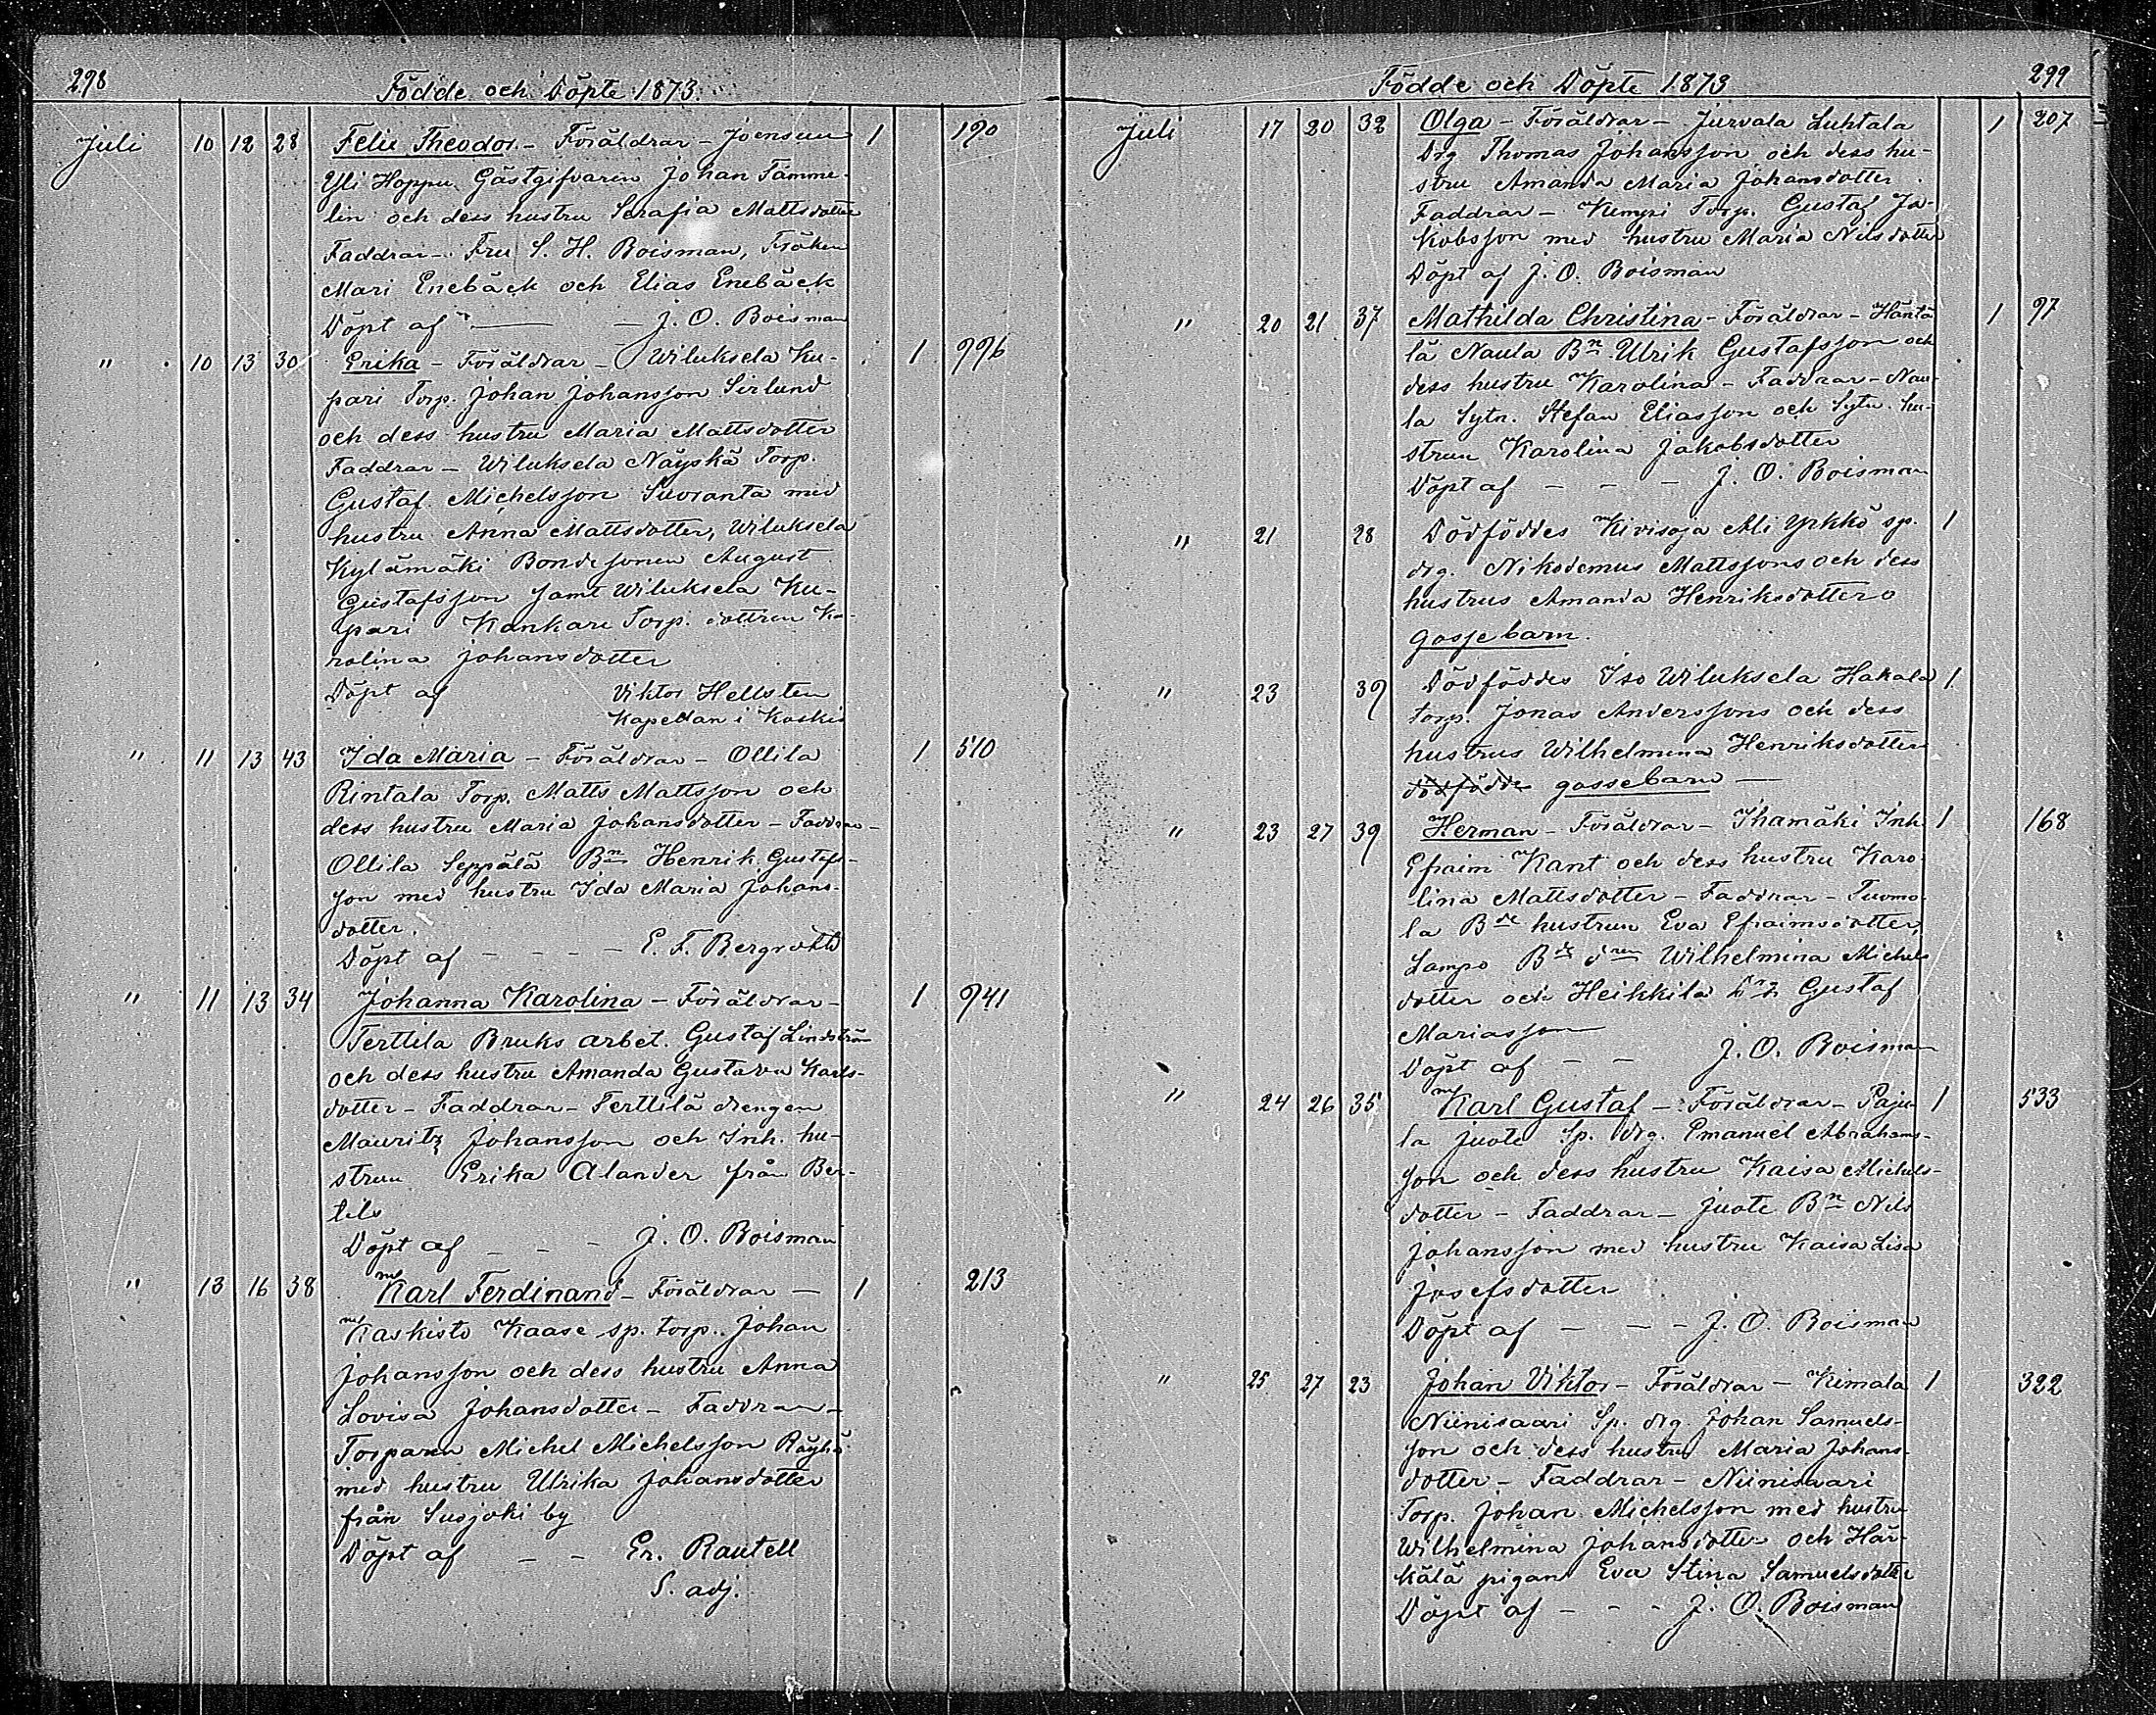 298
Födde och Döpte 1873.
Juli 10 12 28 Felix Theodor. - Föräldrar - Joensuu 1 190
Yli Hoppu Gästgifvaren Johan Tamme-
lin och dess hustru Serafia Mattsdotter
Faddrar - Fru S. H. Boisman, Fröken
Mari Enebäck och Elias Enebäck
Döpt af - J. O. Boisman
" 10 13 30 Erika - Föräldrar - Wiluksela Ku- 1 996
pari Torp. Johan Johansson Sirlund
och dess hustru Maria Mattsdotter
Faddrar - Wiluksela Näyskä Torp.
Gustaf Michelsson Suoranta med
hustru Anna Mattsdotter, Wiluksela
Kylämäki Bondesonen August
Gustafsson samt Wiluksela Ku-
pari Kankare Torp. dottren Ka-
rolina Johansdotter
Döpt af Viktor Hellsten
Kapellan i Koskis
" 11 13 43 Ida Maria - Föräldrar - Ollila 1 510
Rintala Torp. Matts Mattsson och
dess hustru Maria Johansdotter - Faddrar -
Ollila Seppälä Bn Henrik Gustafs-
son med hustru Ida Maria Johans-
dotter.
Döpt af - - - - E. F. Bergroth
" 11 13 34 Johanna Karolina - Föräldrar - 1 941
Terttila Bruks arbet. Gustaf Lindström
och dess hustru Amanda Gustava Karls-
dotter - Faddrar - Terttilä drengen
Mauritz Johansson och Inh. hu-
strun Erika Alander från Ber-
tils
Döpt af - - - J. O. Boisman
" 13 16 38 Karl Ferdinand - Föräldrar - 1 213
Kaskisto Kaase sp. torp. Johan
Johansson och dess hustru Anna
Lovisa Johansdotter - Faddrar -
Torparen Michel Michelsson Räyhä
med hustru Ulrika Johansdotter
från Susjoki by
Döpt af - - Er. Rautell
S. adj.
Födde och Döpte 1873
299
Juli 17 20 32 Olga - Föräldrar - Jurvala Luhtala 1 207
Drg Thomas Johansson och dess hu-
stru Amanda Maria Johansdotter.
Faddrar - Kumpi Torp. Gustaf Ja-
kobsson med hustru Maria Nilsdotter
Döpt af J. O. Boisman
" 20 21 37 Mathilda Christina - Föräldrar - Häntä 1 97
lä Naula Bn Ulrik Gustafsson och
dess hustru Karolina - Faddrar - Nau-
la Sytn. Stefan Eliasson och Sytn. hu-
strun Karolina Jakobsdotter
Döpt af - - - J. O. Boisman
" 21 28 Dödföddes Kivisoja Ali Ypkkö sp. 1
drg. Nikodemus Mattssons och dess
hustrus Amanda Henriksdotters
gossebarn.
" 23 39 Dödföddes Iso Wiluksela Hakala 1
torp. Jonas Anderssons och dess
hustrus Wilhelmina Henriksdotters
dödfödde gossebarn -
" 23 27 39 Herman - Föräldrar - Ihamäki Inh. 1 168
Efraim Kant och dess hustru Karo-
lina Mattsdotter - Faddrar - Tuomo-
la Bde hustrun Eva Efraimsdotter,
Lampo Bde dren Wilhelmina Michels
dotter och Heikkilä Gustaf
Mariasson
Döpt af - - J. O. Boisman
" 24 26 35 Karl Gustaf - Föräldrar - Paju- 1 533
la Juote Sp. drg. Emanuel Abrahams-
son och dess hustru Kaisa Michels-
dotter - Faddrar - Juote Bn Nils
Johansson med hustru Kaisa Lisa
Josefsdotter
Döpt af - - - J. O. Boisman
" 25 27 23 Johan Viktor - Föräldrar - Kimala 1 322
Niinisaari Sp. drg. Johan Samuels-
son och dess hustru Maria Johans-
dotter - Faddrar - Niinisaari
Torp. Johan Michelsson med hustru
Wilhelmina Johansdotter och Här-
kälä pigan Eva Stina Samuelsdotter
Döpt af - - - J. O. Boisman